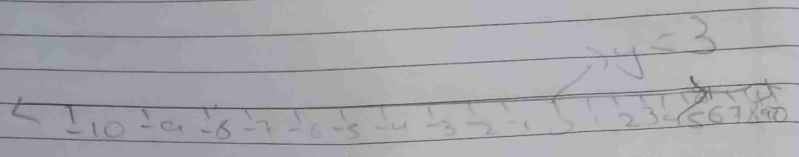 y = 3
-10 -9 -8 -7 -6 -5 -4 -3 -2 -1 1 2 3 4 5 6 7 8 9 10